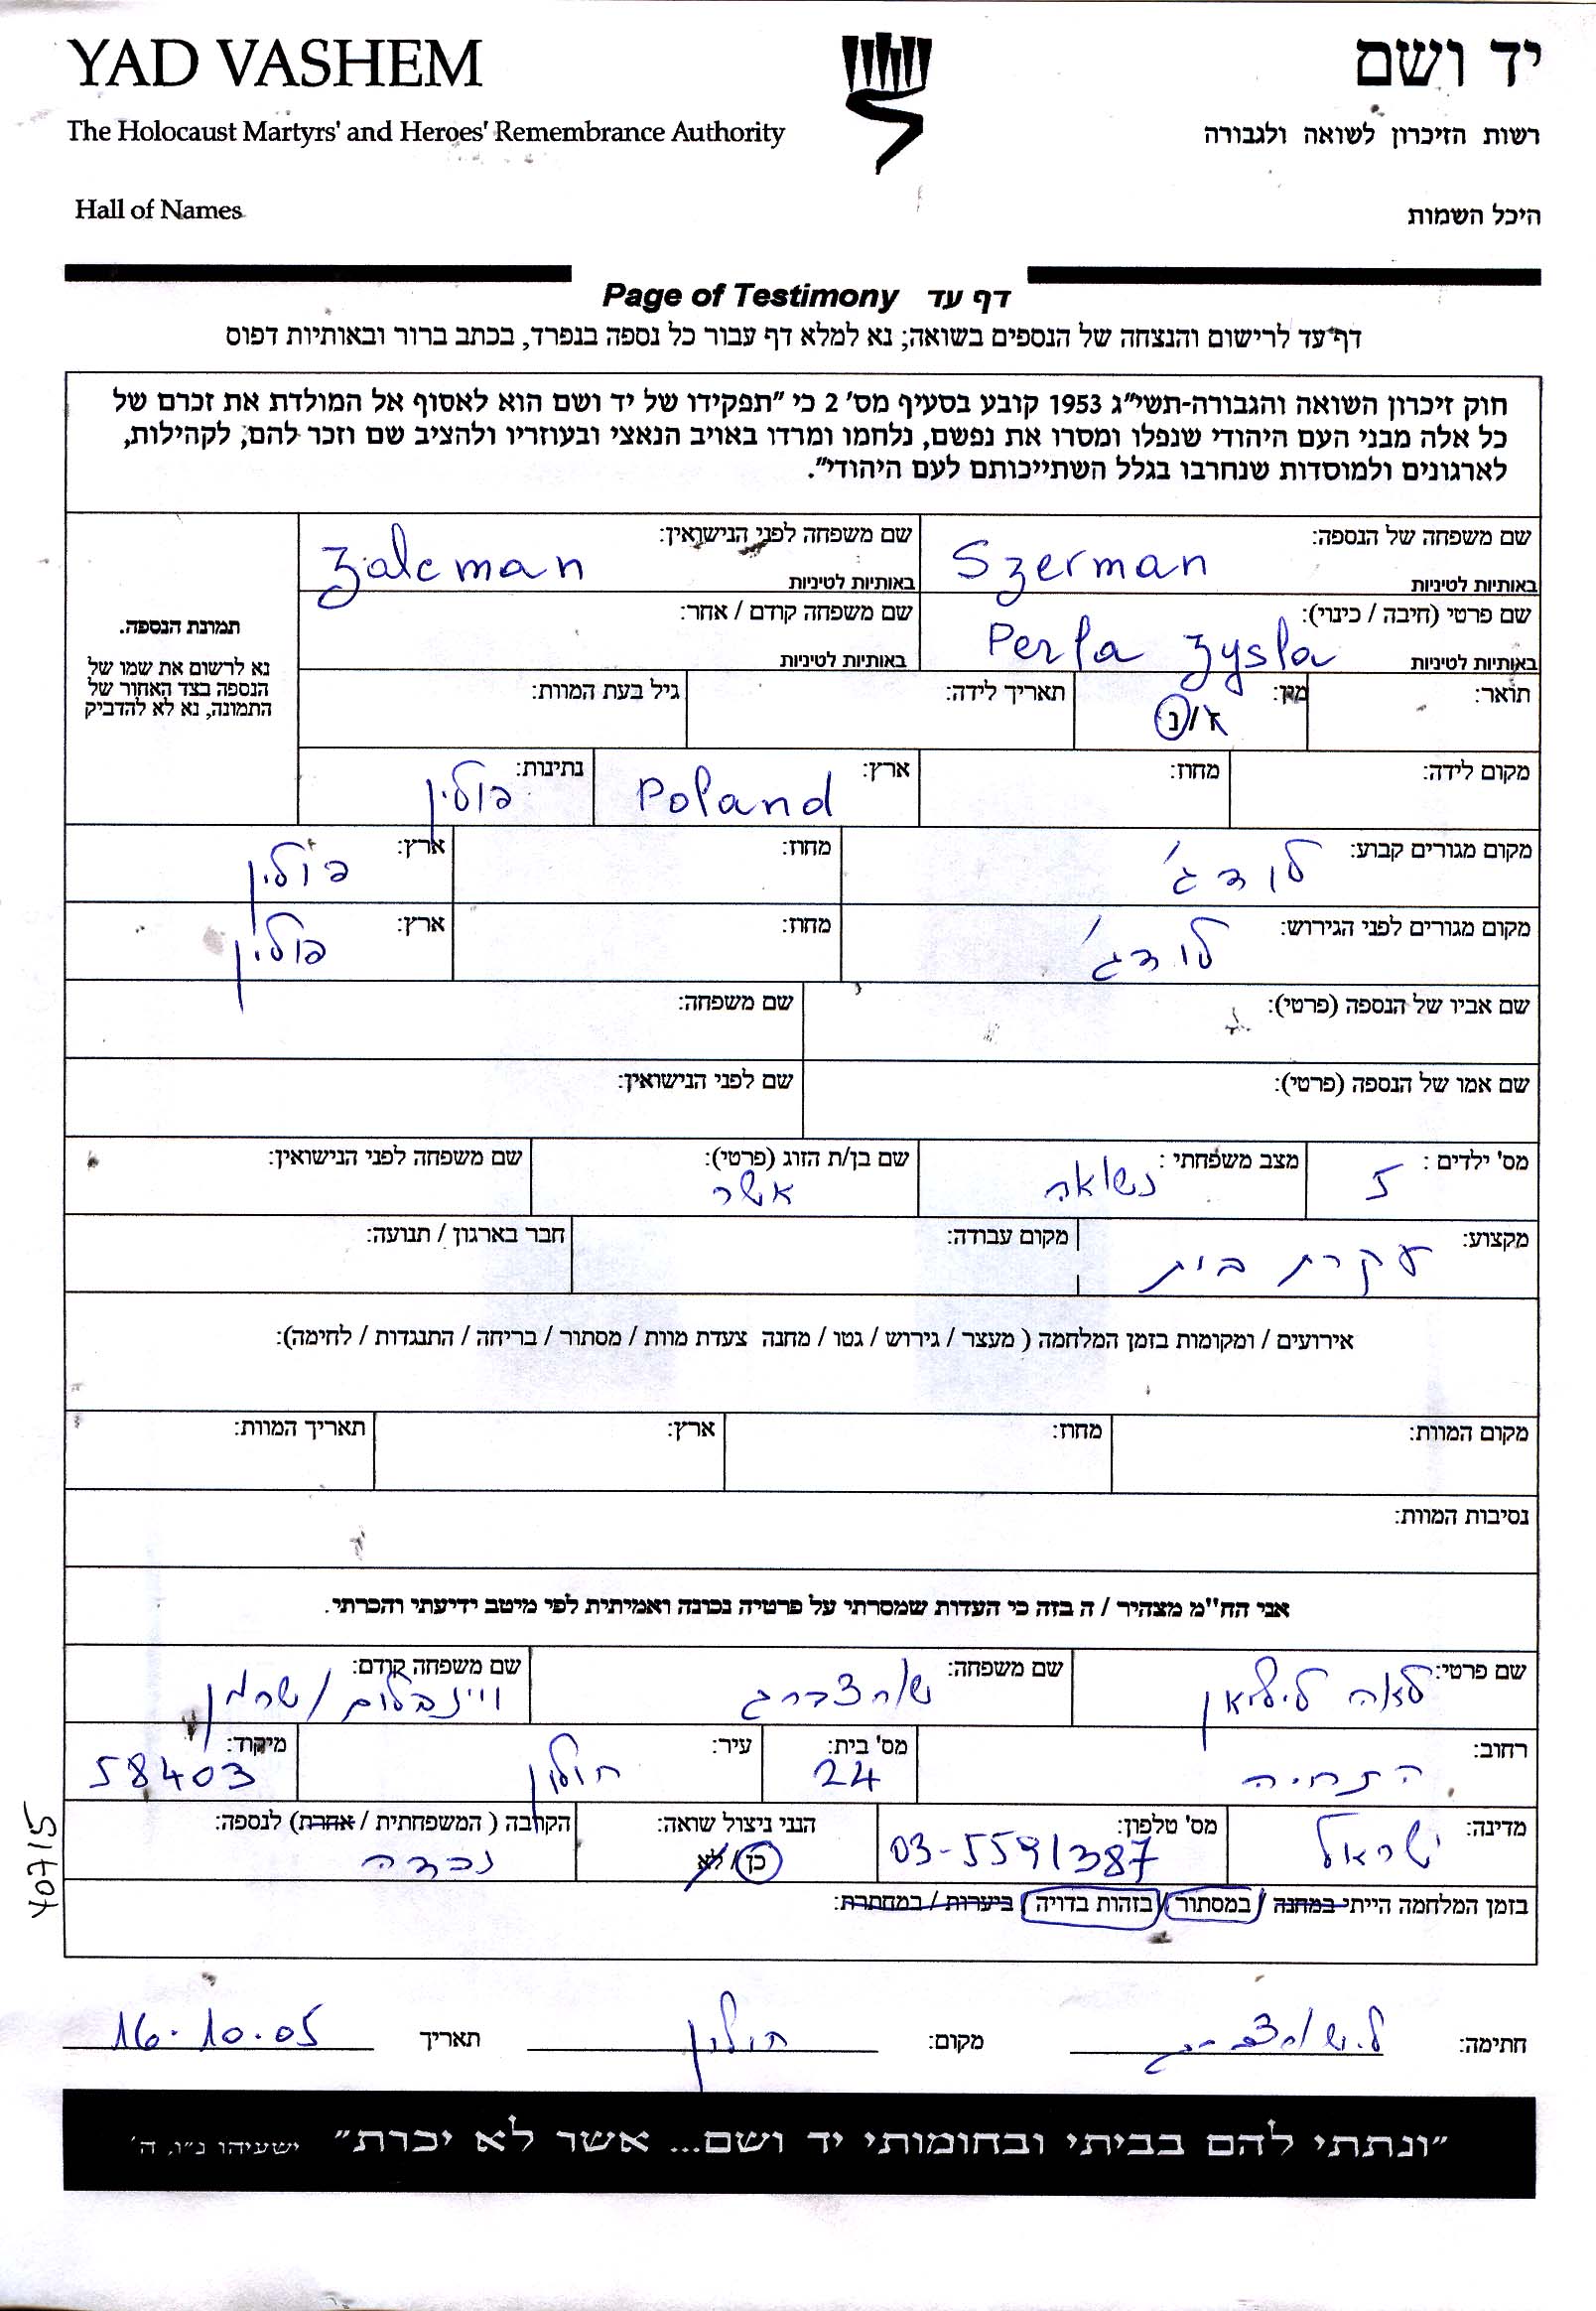 YAD VASHEM
יד ושם
The Holocaust Martyrs' and Heroes' Remembrance Authority
רשות הזיכרון לשואה ולגבורה
Hall of Names
היכל השמות
Page of Testimony דף עד
דף עד לרישום והנצחה של הנספים בשואה; נא למלא דף עבור כל נספה בנפרד, בכתב ברור ובאותיות דפוס
חוק זיכרון השואה והגבורה-תשי"ג 1953 קובע בסעיף מס' 2 כי "תפקידו של יד ושם הוא לאסוף אל המולדת את זכרם של
כל אלה מבני העם היהודי שנפלו ומסרו את נפשם, נלחמו ומרדו באויב הנאצי ובעוזריו ולהציב שם וזכר להם, לקהילות,
לארגונים ולמוסדות שנחרבו בגלל השתייכותם לעם היהודי".
שם משפחה של הנספה: Szerman באותיות לטיניות
שם משפחה לפני הנישואין: Zalcman באותיות לטיניות
שם פרטי (חיבה / כינוי): Perla Zysla באותיות לטיניות
שם משפחה קודם / אחר: באותיות לטיניות
תמונת הנספה.
נא לרשום את שמו של
הנספה בצד האחור של
התמונה, נא לא להדביק
תואר: מין: ז / נ תאריך לידה: גיל בעת המוות:
מקום לידה: מחוז: ארץ: Poland נתינות: פולין
מקום מגורים קבוע: לודג' מחוז: ארץ: פולין
מקום מגורים לפני הגירוש: לודג' מחוז: ארץ: פולין
שם אביו של הנספה (פרטי): שם משפחה:
שם אמו של הנספה (פרטי): שם לפני הנישואין:
מס' ילדים: 5 מצב משפחתי: נשואה שם בן/ת הזוג (פרטי): אשר שם משפחה לפני הנישואין:
מקצוע: עקרת בית מקום עבודה: חבר בארגון / תנועה:
אירועים / ומקומות בזמן המלחמה ( מעצר / גירוש / גטו / מחנה צעדת מוות / מסתור / בריחה / התנגדות / לחימה):
מקום המוות: מחוז: ארץ: תאריך המוות:
נסיבות המוות:
אני הח"מ מצהיר / ה בזה כי העדות שמסרתי על פרטיה נכונה ואמיתית לפי מיטב ידיעתי והכרתי.
שם פרטי: לאה ליליאן שם משפחה: שוורצברג שם משפחה קודם: ויינבלום / שרמן
רחוב: התחיה מס' בית: 24 עיר: חולון מיקוד: 58403
מדינה: ישראל מס' טלפון: 03-5591387 הנני ניצול שואה: כן / לא הקרובה ( המשפחתית / אחרת) לנספה: נכדה
בזמן המלחמה הייתי במחנה / במסתור / בזהות בדויה / ביערות / במחתרת:
40715
חתימה: ל. שוורצברג מקום: חולון תאריך 16.10.05
"ונתתי להם בביתי ובחומותי יד ושם... אשר לא יכרת" ישעיהו נ"ו, ה'